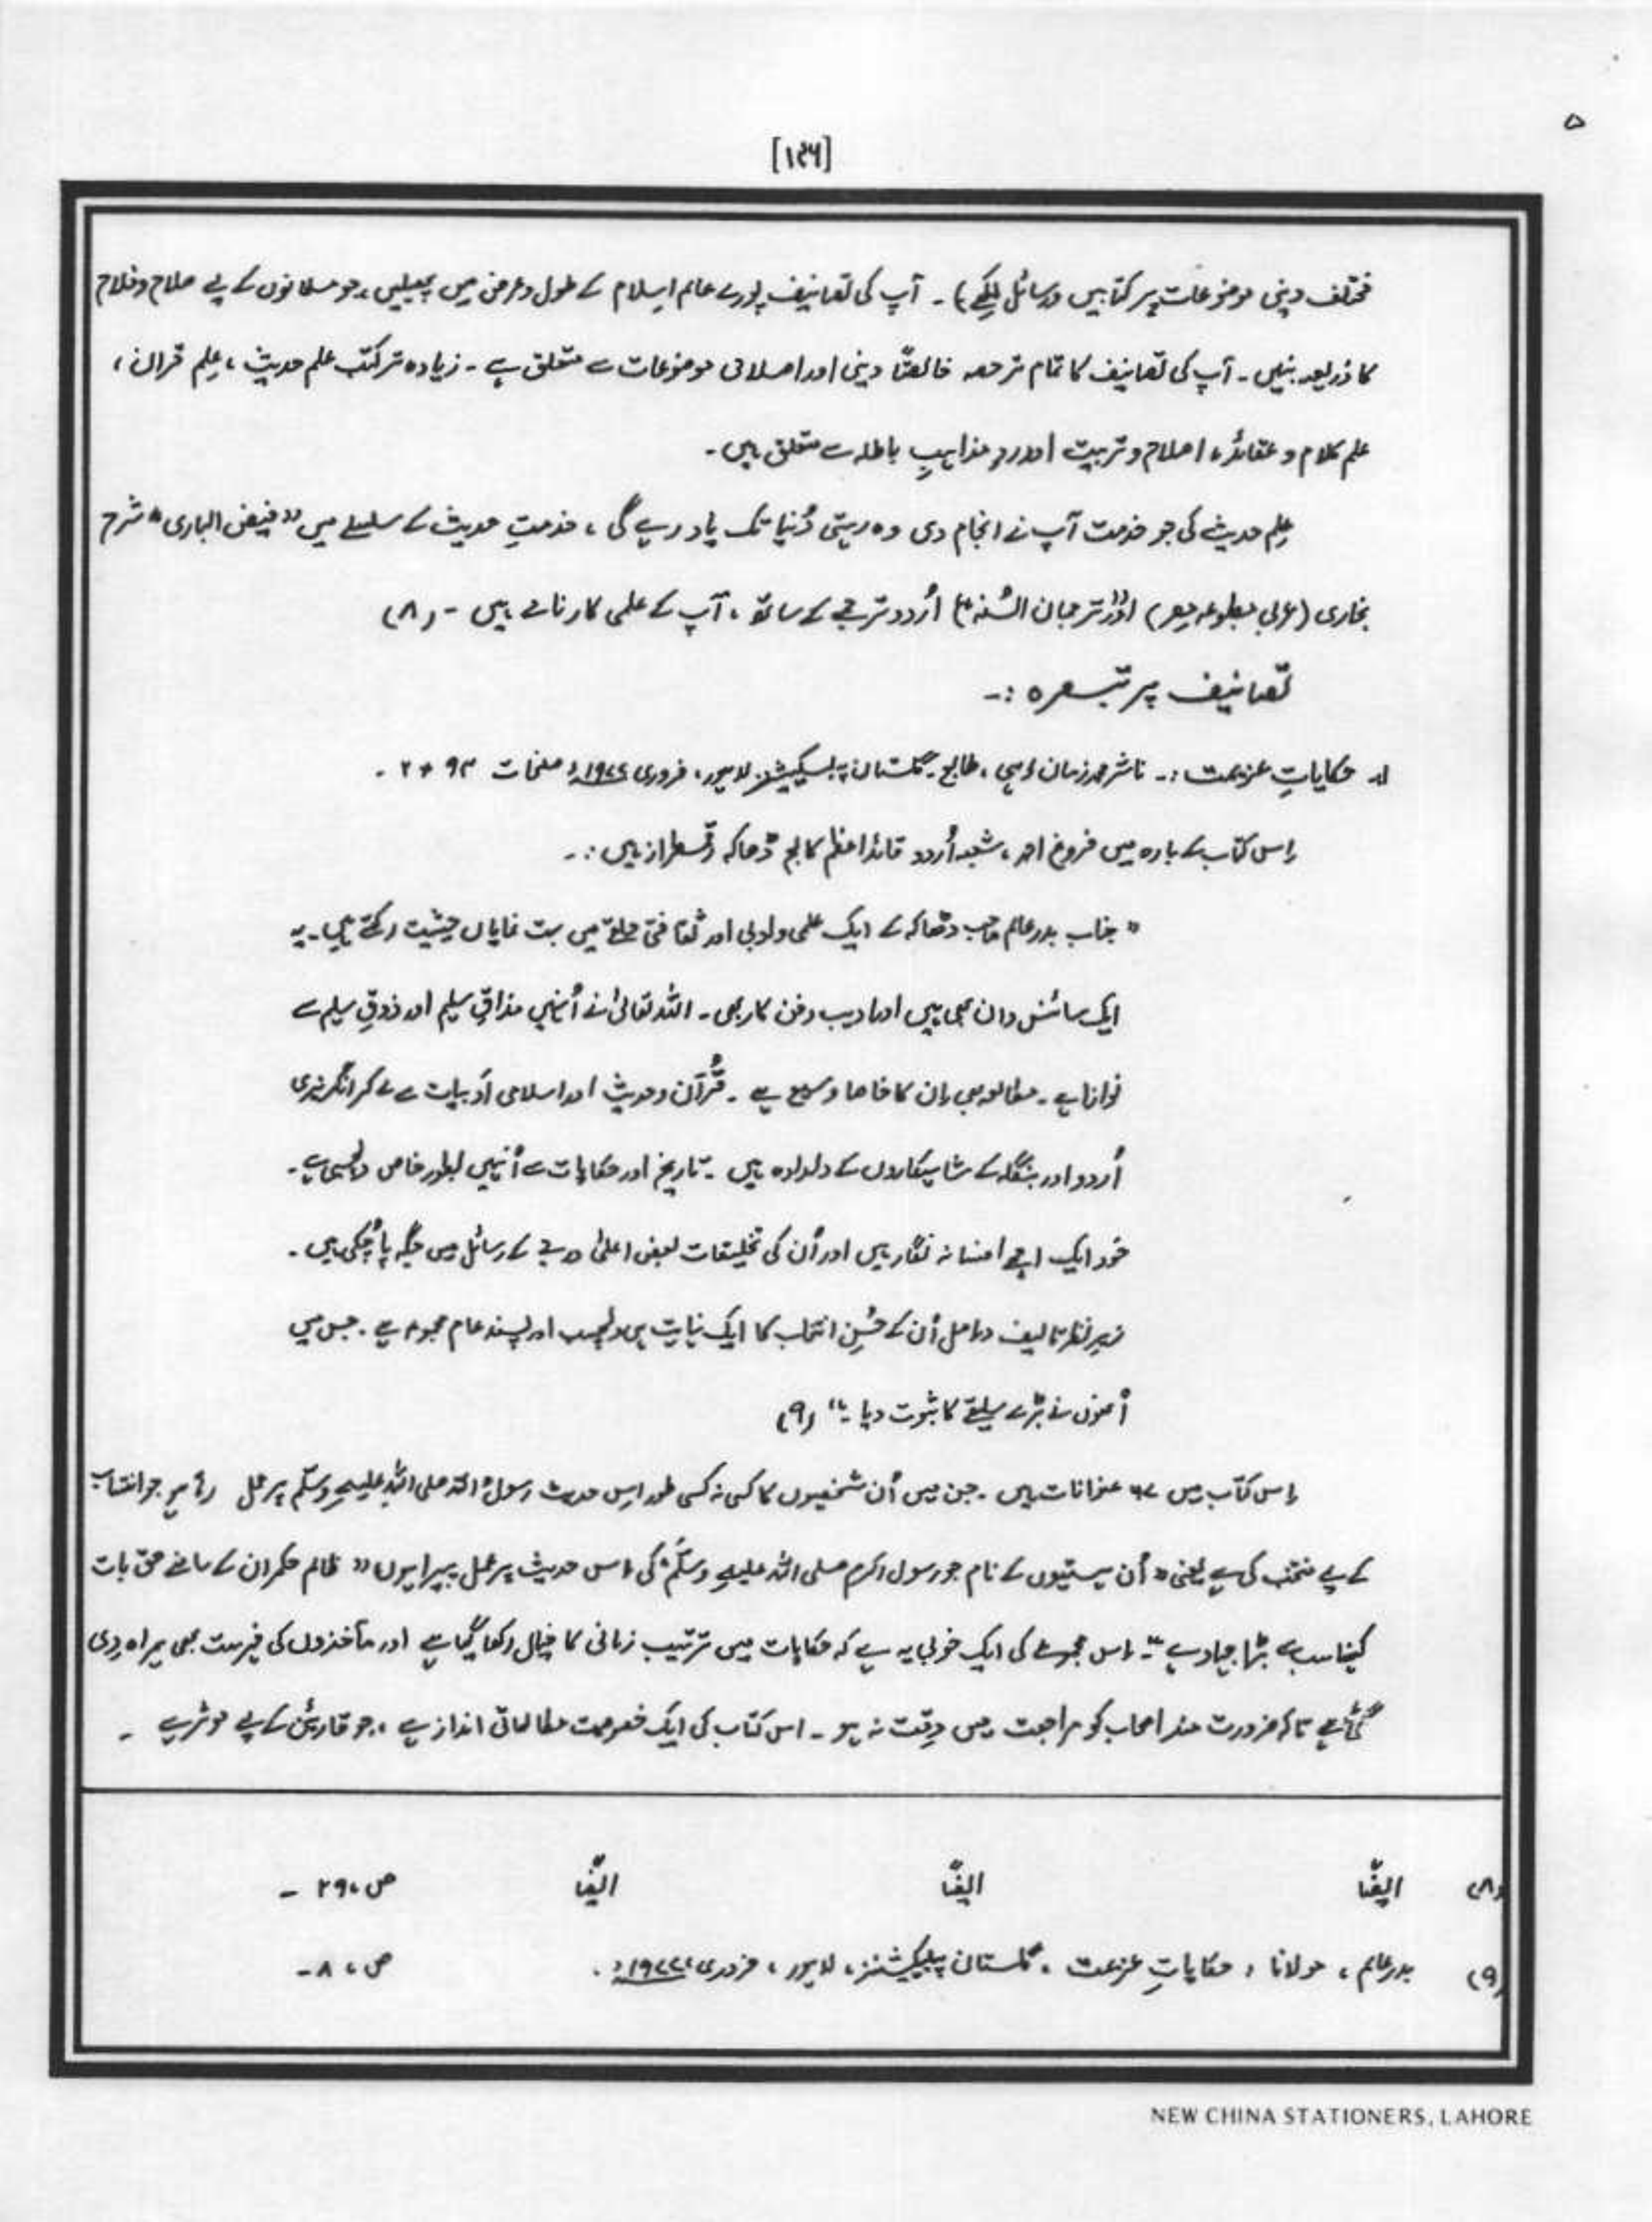 [۱۴۶]
مختلف دینی موضوعات پر کتابیں و رسائل لکھے)۔ آپ کی تصانیف پورے عالم اسلام کے طول و عرض میں پھیلیں، جو مسلمانوں کے لیے صلاح و فلاح
کا ذریعہ بنیں۔ آپ کی تصانیف کا تمام تر حصہ خالصتاً دینی اور اصلاحی موضوعات سے متعلق ہے۔ زیادہ تر کتب علم حدیث، علم قرآن،
علم کلام و عقائد، اصلاح و تربیت اور ردِ مذاہبِ باطلہ سے متعلق ہیں۔
علم حدیث کی جو خدمت آپ نے انجام دی وہ رہتی دُنیا تک یاد رہے گی، خدمتِ حدیث کے سلسلے میں "فیض الباری" شرح
بخاری (عربی مطبوعہ مصر) اور "ترجمان السُنہ" (اُردو ترجمے کے ساتھ، آپ کے علمی کارنامے ہیں۔ (۸)
تصانیف پر تبصرہ :۔
۱۔ حکایاتِ عزیمت :۔ ناشر محمد زمان، طابع۔ گلستان پبلیکیشنز لاہور، فروری ۱۹۷۷ء صفحات ۹۳ + ۲ ۔
اِس کتاب کے بارہ میں فروغ احمد، شعبہ اُردو قائد اعظم کالج ڈھاکہ رقمطراز ہیں :۔
" جناب بدر عالم صاحب ڈھاکہ کے ایک علمی و ادبی اور ثقافتی حلقے میں بہت نمایاں حیثیت رکھتے ہیں۔ یہ
ایک سائنس دان بھی ہیں اور ادیب و فن کار بھی۔ اللہ تعالیٰ نے اُنہیں مذاقِ سلیم اور ذوقِ سلیم سے
نوازا ہے۔ مطالعہ بھی اِن کا خاصا وسیع ہے۔ قُرآن و حدیث اور اسلامی ادبیات سے لے کر انگریزی
اُردو اور بنگلہ کے شاہکاروں کے دلدادہ ہیں۔ تاریخ اور حکایات سے اُنہیں بطور خاص دلچسپی ہے۔
خود ایک اچھے افسانہ نگار ہیں اور اُن کی تخلیقات بعض اعلیٰ درجے کے رسائل میں جگہ پا چُکی ہیں۔
زیرِ نظر تالیف دراصل اُن کے حُسنِ انتخاب کا ایک نہایت ہی دلچسپ اور پسند عام مجموعہ ہے۔ جس میں
اُنھوں نے بڑے سلیقے کا ثبوت دیا ہے" (۹)
اِس کتاب میں ۶۷ عنوانات ہیں۔ جن میں اُن شخصیوں کا کسی نہ کسی طور اِس حدیث رسول اللہ صلی اللہ علیہِ وسلّم پر عمل رہا ہے جو انتساب
کے لیے منتخب کی ہے یعنی "اُن ہستیوں کے نام جو رسول اکرم صلی اللہ علیہِ وسلّم کی اس حدیث پر عمل پیرا ہوں" ظالم حکمران کے سامنے حق بات
کہنا سب سے بڑا جہاد ہے"۔ اس مجموعے کی ایک خوبی یہ ہے کہ حکایات میں ترتیب زمانی کا خیال رکھا گیا ہے اور مآخذوں کی فہرست بھی ہمراہ دِی
گئی ہے تاکہ ضرورت مند اصحاب کو مراجعت میں دِقت نہ ہو۔ اس کتاب کی ایک خصوصیت مطالعاتی انداز ہے، جو قارئین کے لیے موثر ہے ۔
(۸) ایضًا ایضًا ایضًا ص، ۲۹ ۔
(۹) بدر عالم، مولانا، حکایاتِ عزیمت، گلستان پبلیکیشنز، لاہور، فروری، ۱۹۷۷ء۔ ص، ۸۔
NEW CHINA STATIONERS, LAHORE